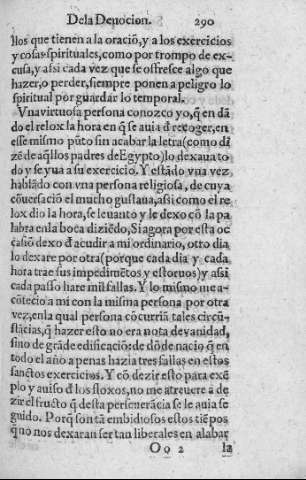 De la Deuocion. 290
llos que tienen a la oraciõ, y a los exercicios
y cosas spirituales, como por trompo de ex-
cusa, y assi cada vez que se offresce algo que
hazer, o perder, siempre ponen a peligro lo
spiritual por guardar lo temporal.
Vna virtuosa persona conozco yo, q̃ en dã
do el relox la hora en q̃ se auia d̃ recoger, en
esse mismo pũto sin acabar la letra (como di
zẽ de aq̃llos padres de Egypto) lo dexaua to
do y se yua a su exercicio. Y estãdo vna vez
hablãdo con vna persona religiosa, de cuya
cõuersaciõ el mucho gustaua, assi como el re
lox dio la hora, se leuanto y le dexo cõ la pa
labra en la boca diziẽdo, Si agora por esta oc
casiõ dexo d̃ acudir a mi ordinario, otro dia
lo dexare por otra (porque cada dia y cada
hora trae sus impedimẽtos y estoruos) y assi
cada passo hare mil fallas. Y lo mismo me a-
cõtecio a mi con la misma persona por otra
vez, en la qual persona cõcurriã tales circũ-
stãcias, q̃ hazer esto no era nota de vanidad,
sino de grãde edificaciõ: de dõde nacio q̃ en
todo el año a penas hazia tres fallas en estos
sanctos exercicios. Y cõ dezir esto para exẽ
plo y auiso d̃ los floxos, no me atreuere a de
zir el fructo q̃ desta perseuerãcia se le auia se
guido. Porq̃ son tã embidiosos estos tiẽpos
q̃ no nos dexaran ser tan liberales en alabar
O o 2 la